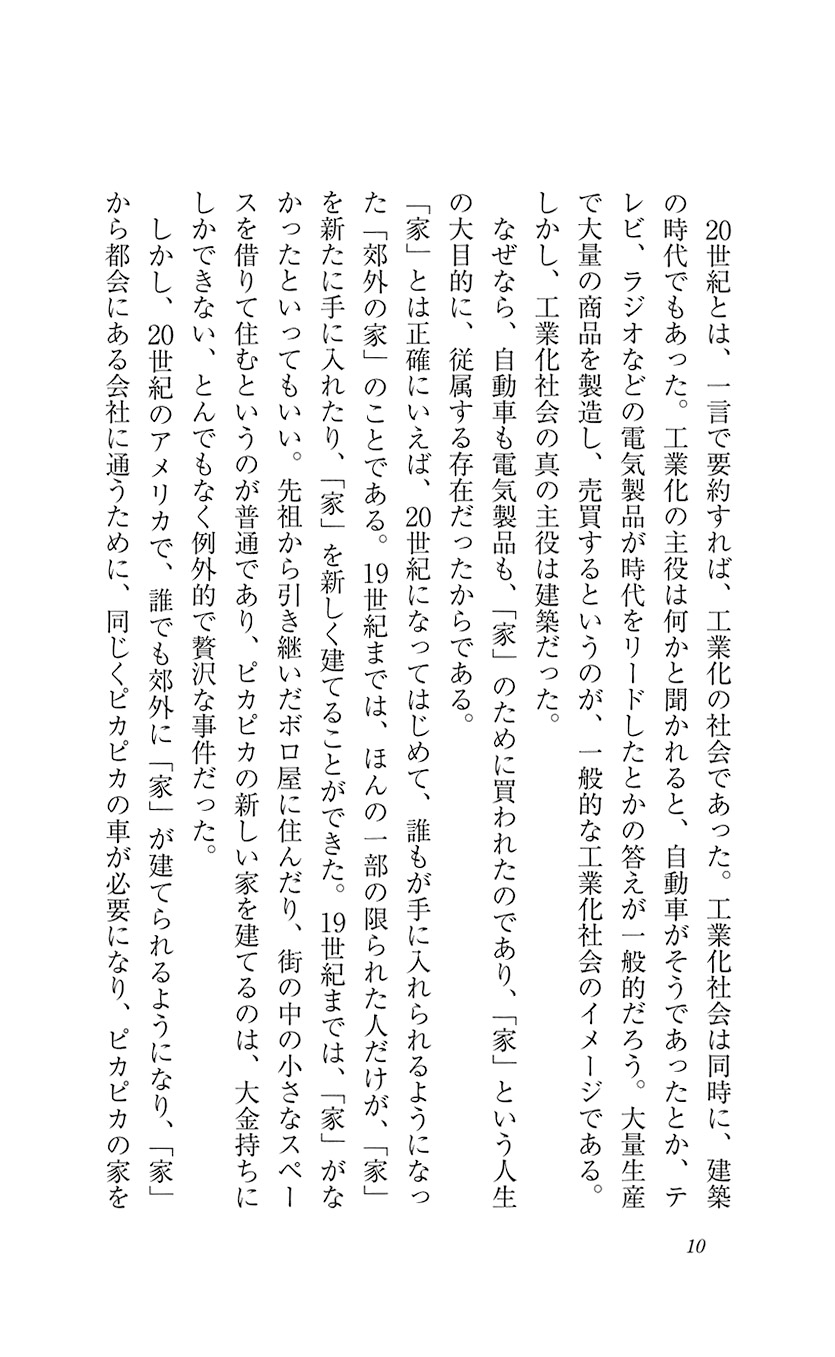 20世紀とは、一言で要約すれば、工業化の社会であった。工業化社会は同時に、建築
の時代でもあった。工業化の主役は何かと聞かれると、自動車がそうであったとか、テ
レビ、ラジオなどの電気製品が時代をリードしたとかの答えが一般的だろう。大量生産
で大量の商品を製造し、売買するというのが、一般的な工業化社会のイメージである。
しかし、工業化社会の真の主役は建築だった。
なぜなら、自動車も電気製品も、「家」のために買われたのであり、「家」という人生
の大目的に、従属する存在だったからである。
「家」とは正確にいえば、20世紀になってはじめて、誰もが手に入れられるようになっ
た「郊外の家」のことである。19世紀までは、ほんの一部の限られた人だけが、「家」
を新たに手に入れたり、「家」を新しく建てることができた。19世紀までは、「家」がな
かったといってもいい。先祖から引き継いだボロ屋に住んだり、街の中の小さなスペー
スを借りて住むというのが普通であり、ピカピカの新しい家を建てるのは、大金持ちに
しかできない、とんでもなく例外的で贅沢な事件だった。
しかし、20世紀のアメリカで、誰でも郊外に「家」が建てられるようになり、「家」
から都会にある会社に通うために、同じくピカピカの車が必要になり、ピカピカの家を
10